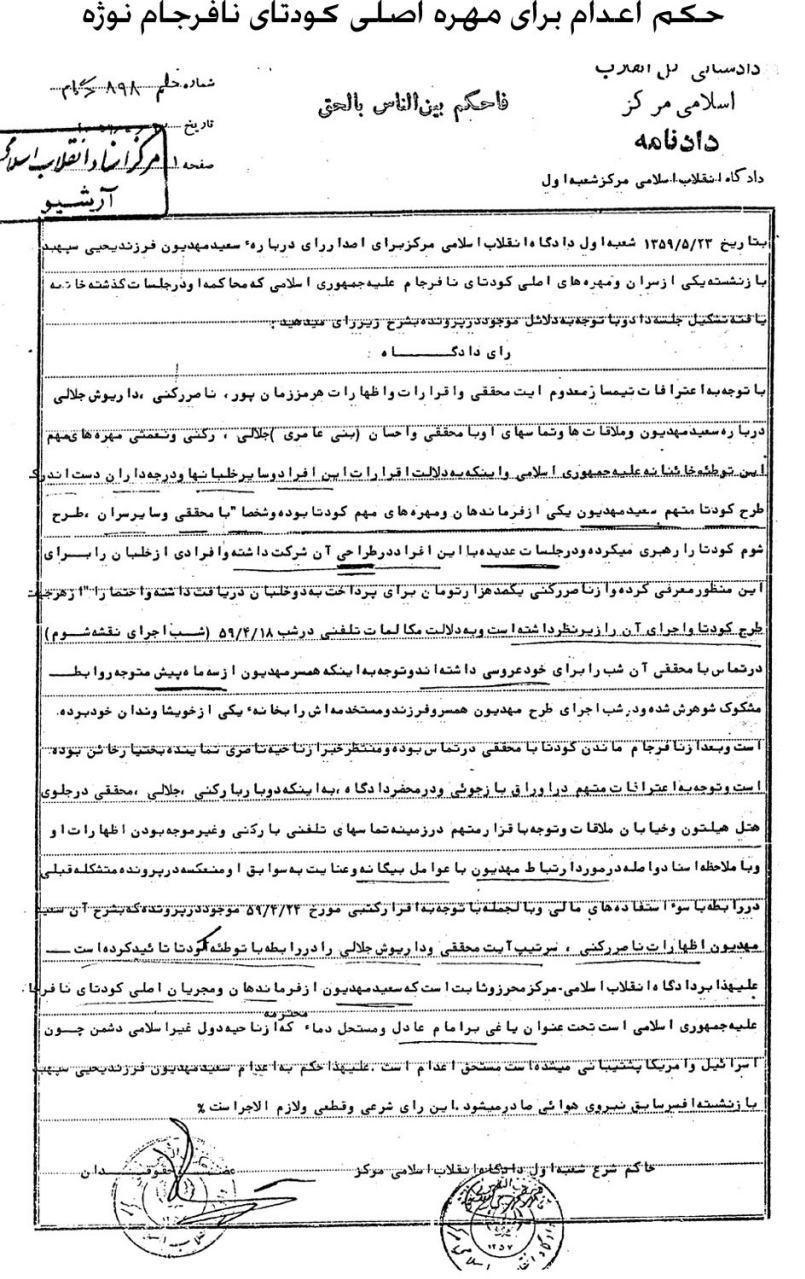 حکم اعدام برای مهره اصلی کودتای نافرجام نوژه
دادستانی کل انقلاب
اسلامی مرکز
دادنامه
دادگاه انقلاب اسلامی مرکز شعبه اول
فاحکم بین الناس بالحق
شماره ۸۹۸
تاریخ
صفحه ۱
مرکز اسناد انقلاب اسلامی
آرشیو
بتاریخ ۱۳۵۹/۵/۲۳ شعبه اول دادگاه انقلاب اسلامی مرکز برای اصدار رای درباره سعید مهدیون فرزند یحیی سپهبد
بازنشسته یکی از سران و مهره های اصلی کودتای نافرجام علیه جمهوری اسلامی که محاکمه او در جلسات گذشته خاتمه
یافته تشکیل جلسه داد و با توجه به دلائل موجود در پرونده بشرح زیر رای میدهید :
رای دادگـــــاه :
با توجه به اعترافات تیمسار معدوم آیت محققی و اقرارات و اظهارات هرمز زمان پور ، ناصر رکنی ، داریوش جلالی
درباره سعید مهدیون و ملاقات ها و تماسهای او با محققی و احسان (بنی عامری) جلالی ، رکنی و نعمتی مهره های مهم
این توطئه خائنانه علیه جمهوری اسلامی و اینکه به دلالت اقرارات این افراد و سایر خلبانها و درجه داران دست اندرک
طرح کودتا متهم سعید مهدیون یکی از فرماندهان و مهره های مهم کودتا بوده و شخصا" با محققی و سایر سران ، طرح
شوم کودتا را رهبری میکرده و در جلسات عدیده با این افراد در طراحی آن شرکت داشته و افرادی از خلبان را بـرای
این منظور معرفی کرده و از ناصر رکنی یکصد هزار تومان برای پرداخت به دو خلبان دریافت داشته و احتمارا" از هر جهت
طرح کودتا و اجرای آن را زیر نظر داشته است و به دلالت مکالمات تلفنی در شب ۵۹/۴/۱۸ (شب اجرای نقشه شوم)
در تماس با محققی آن شب را برای خود عروسی داشته اند و توجه به اینکه همسر مهدیون از سه ماه پیش متوجه روابط
مشکوک شوهرش شده و در شب اجرای طرح مهدیون همسر و فرزند و مستخدمه اش را بخانه یکی از خویشاوندان خود برده
است و بعد از نافرجام ماندن کودتا با محققی در تماس بوده و منتظر خبر از ناحیه ناصری نماینده بختیار خائن بوده
است و توجه به اعترافات متهم در اوراق بازجوئی و در محضر دادگاه ، به اینکه دو بار با رکنی ، جلالی ، محققی در جلوی
هتل هیلتون و خیابان ملاقات و توجه با قرار متهم در زمینه تماسهای تلفنی با رکنی و غیر موجه بودن اظهارات او
و با ملاحظه اسناد واصله در مورد ارتباط مهدیون با عوامل بیگانه و عنایت به سوابق او منعکسه در پرونده متشکله قبلی
در رابطه با سوء استفاده های مالی و بالجمله با توجه به اقرار کتبی مورخ ۵۹/۴/۲۴ موجود در پرونده که بشرح آن سعید
مهدیون اظهارات ناصر رکنی ، سرتیپ آیت محققی و داریوش جلالی را در رابطه با توطئه کودتا تائید کرده است
علیهذا بر دادگاه انقلاب اسلامی مرکز محرز و ثابت است که سعید مهدیون از فرماندهان و مجریان اصلی کودتای نافرجا
علیه جمهوری اسلامی است تحت عنوان یاغی بر امام عادل و مستحل دماء محترمه که از ناحیه دول غیر اسلامی دشمن چـون
اسرائیل و امریکا پشتیبانی میشده است مستحق اعدام است . علیهذا حکم به اعدام سعید مهدیون فرزند یحیی سپهبد
بازنشسته افسر سابق نیروی هوائی صادر میشود . این رای شرعی و قطعی و لازم الاجراست %
حاکم شرع شعبه اول دادگاه انقلاب اسلامی مرکز
عضـــو حقوقـــدان
۱۳۵۷